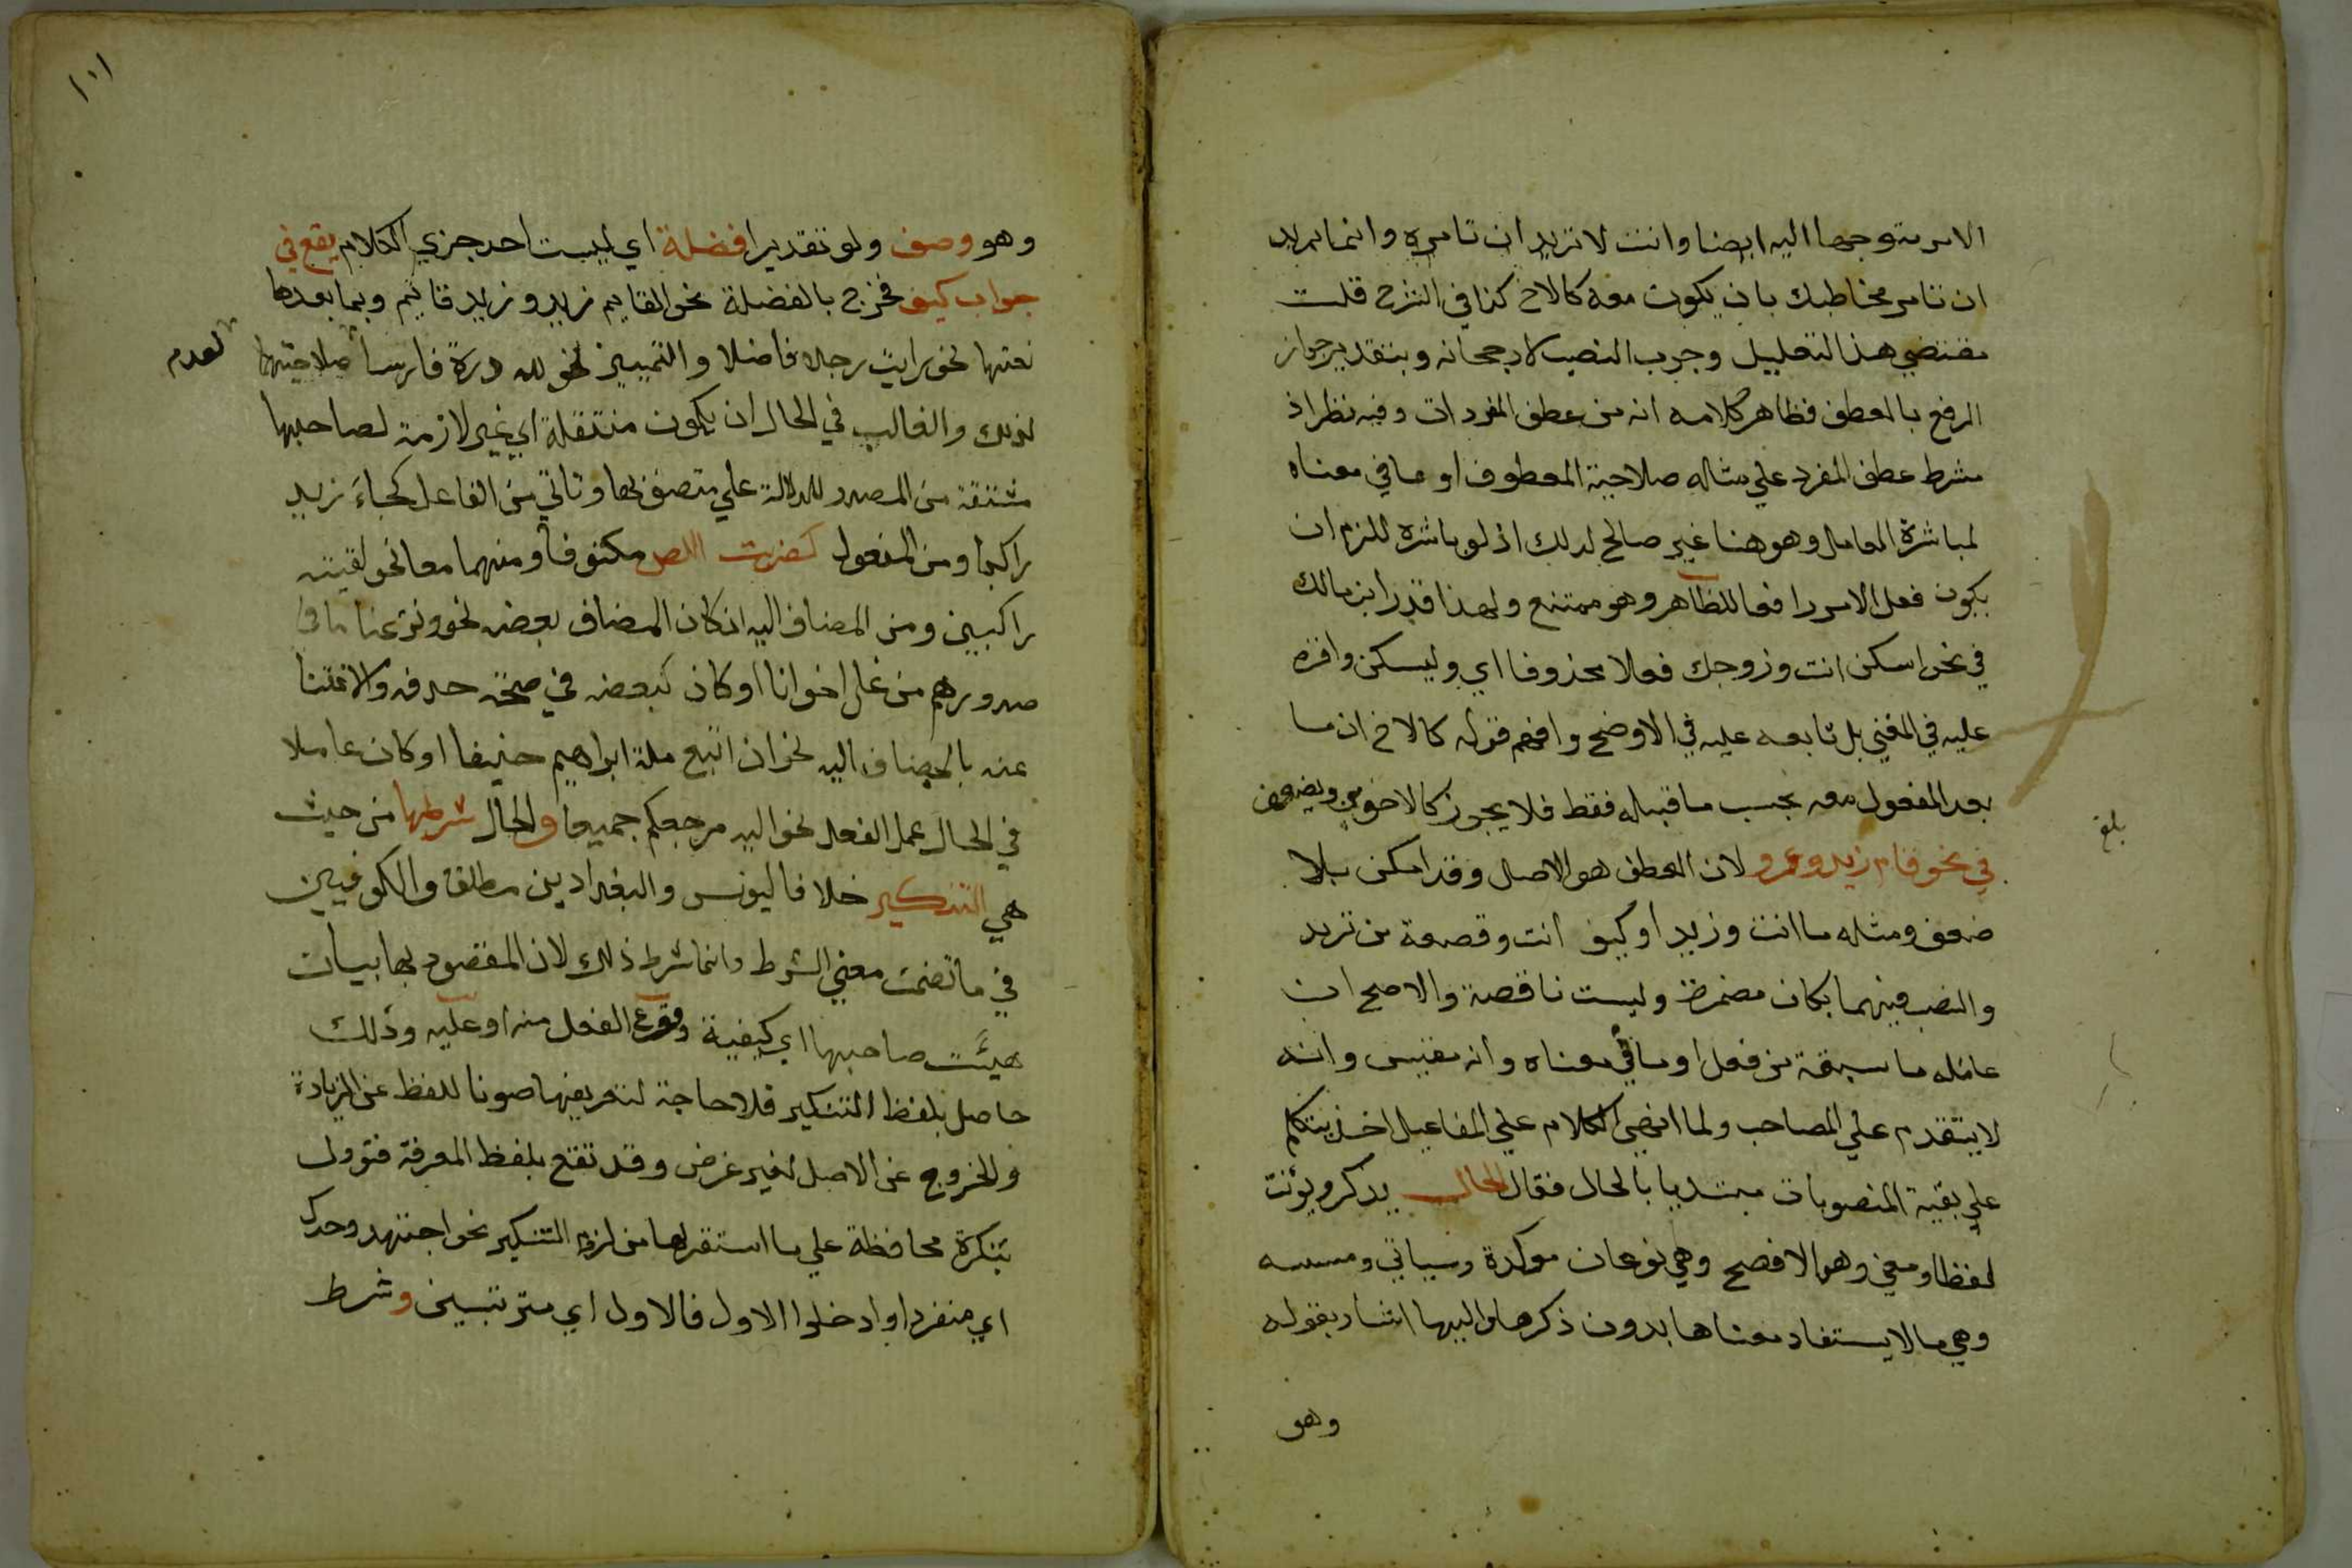 الامر متوجها اليه ايضا وانت لا تريد ان تامره وانما تريد
ان تامر مخاطبك بان يكون معه كالاخ كذا في الشرح قلت
مقتضي هذا التعليل وجوب النصب لا رجحانه وبتقدير جواز
الرفع بالعطف فظاهر كلامه انه من عطف المفردات وفيه نظر اذ
شرط عطف المفرد علي مثاله صلاحية المعطوف او ما في معناه
لمباشرة العامل وهو هنا غير صالح لذلك اذ لو باشره للزم ان
يكون فعل الامر رافعا للظاهر وهو ممتنع ولهذا قدر ابن مالك
في نحو اسكن انت وزوجك فعلا محذوفا اي وليسكن واقره
عليه في المغني بل تابعه عليه في الاوضح وافهم قوله كالاخ ان ما
بعد المفعول معه بحسب ما قبله فقط فلا يجوز كالاخوين ويضعف
في نحو قام زيد وعمرو لان العطف هو الاصل وقد امكن بلا
ضعف ومثله ما انت وزيد او كيف انت وقصعة من تريد
والنصب فيهما بكان مضمرة وليست ناقصة والاصح ان
عامله ما سبقه من فعل او ما في معناه وانه مقيس وانه
لا يتقدم علي المصاحب ولما انهي الكلام علي المفاعيل اخذ يتكلم
علي بقية المنصوبات مبتديا بالحال فقال الحال يذكر ويؤنث
لفظا ومعني وهو الافصح وهي نوعان موكدة وسياتي ومبينه
وهي ما لا يستفاد معناها بدون ذكرها واليها اشار بقوله
وهو
بلغ
١٠١
وهو وصف ولو تقديرا فضلة اي ليست احد جزي الكلام يقع في
جواب كيف فخرج بالفضلة نحو القايم زيد وزيد قايم وبما بعدها
نعتها نحو رايت رجلا فاضلا والتمييز نحو لله دره فارسا صلاحيتهما
لعدم
لذلك والغالب في الحال ان يكون منتقلة اي غير لازمة لصاحبها
مشتقة من المصدر للدلالة علي متصف بها وتاتي من الفاعل كجاء زيد
راكبا ومن المفعول كضربت اللص مكتوفا ومنهما معا نحو لقيته
راكبين ومن المضاف اليه ان كان المضاف بعضه نحو ونزعنا ما في
صدورهم من غل اخوانا او كان كبعضه في صحة حذفه والاغتنا
عنه بالمضاف اليه نحو ان اتبع ملة ابراهيم حنيفا او كان عاملا
في الحال عمل الفعل نحو اليه مرجعكم جميعا والحال شرطها من حيث
هي التنكير خلافا ليونس والبغداديين مطلقا والكوفيين
في ما تضمن معني الشرط وانما شرط ذلك لان المقصود بها بيان
هيئت صاحبها اي كيفية وقوع الفعل منه او عليه وذلك
حاصل بلفظ التنكير فلا حاجة لتعريفها صونا للفظ عن الزيادة
والخروج عن الاصل لغير غرض وقد تقع بلفظ المعرفة فتوول
بنكرة محافظة علي ما استقر لها من لزوم التنكير نحو اجتهد وحدك
اي منفردا وادخلوا الاول فالاول اي مترتبين وشرط